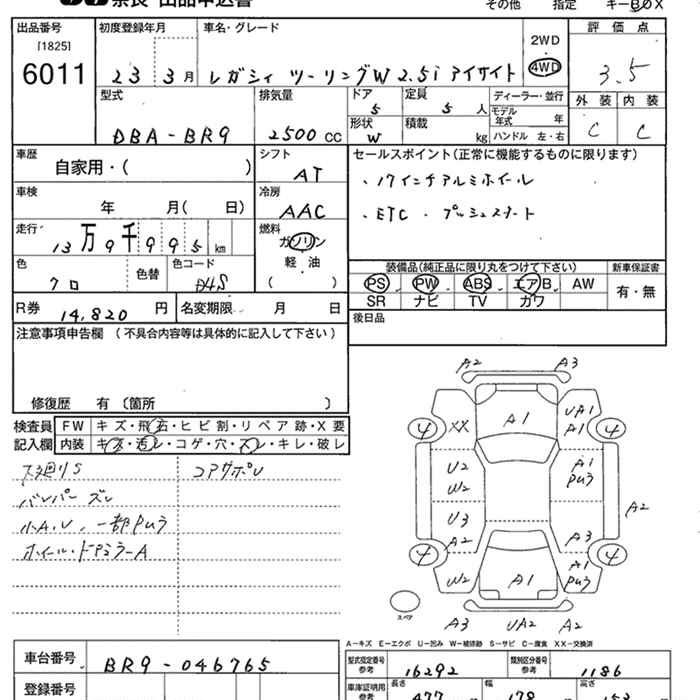 奈良 出品申込書 その他 指定 キーBOX
出品番号 初度登録年月 車名・グレード 評価点
[1825] 2WD
6011 23 3月 レガシィ ツーリングW 2.5i アイサイト 4WD 3.5
型式 排気量 ドア 定員 ディーラー・並行 外装 内装
5 5人 モデル年式 年
DBA-BR9 2500 CC 形状 積載 C C
W kg ハンドル 左・右
車歴 シフト セールスポイント(正常に機能するものに限ります)
自家用・( ) AT ・17インチアルミホイール
車検 冷房
年 月( 日) AAC ・ETC ・プッシュスタート
走行 燃料
13万9千995km ガソリン
色 色替 色コード 軽・油 装備品(純正品に限り丸をつけて下さい) 新車保証書
クロ D4S ( ) PS PW ABS エアB AW 有・無
R券 14,820円 名変期限 月 日 SR ナビ TV カワ
注意事項申告欄 (不具合内容等は具体的に記入して下さい) 後日品
修復歴 有 〔箇所 〕
検査員 FW キズ・飛石・ヒビ割・リペア跡・X要
記入欄 内装 キズ・汚レ・コゲ・穴・スレ・キレ・破レ
コアサポU
バンパーズレ
小A.U、一部Pムラ
ホイール・ドアミラーA
A2 A3
4 XX A1 UA1 A1 4
U2 W2 A1 Pムラ
U3 A2
A2 A3
4 W2 A1 A1 Pムラ 4
スペア A3 UA2 A2
A-キズ E-エクボ U-凹み W-補修跡 S-サビ C-腐食 XX-交換済
車台番号 BR9-046765 型式指定番号 参考 16292 類別区分番号 参考 1186
登録番号 車庫証明用 参考 長さ 477 幅 178 高さ 153